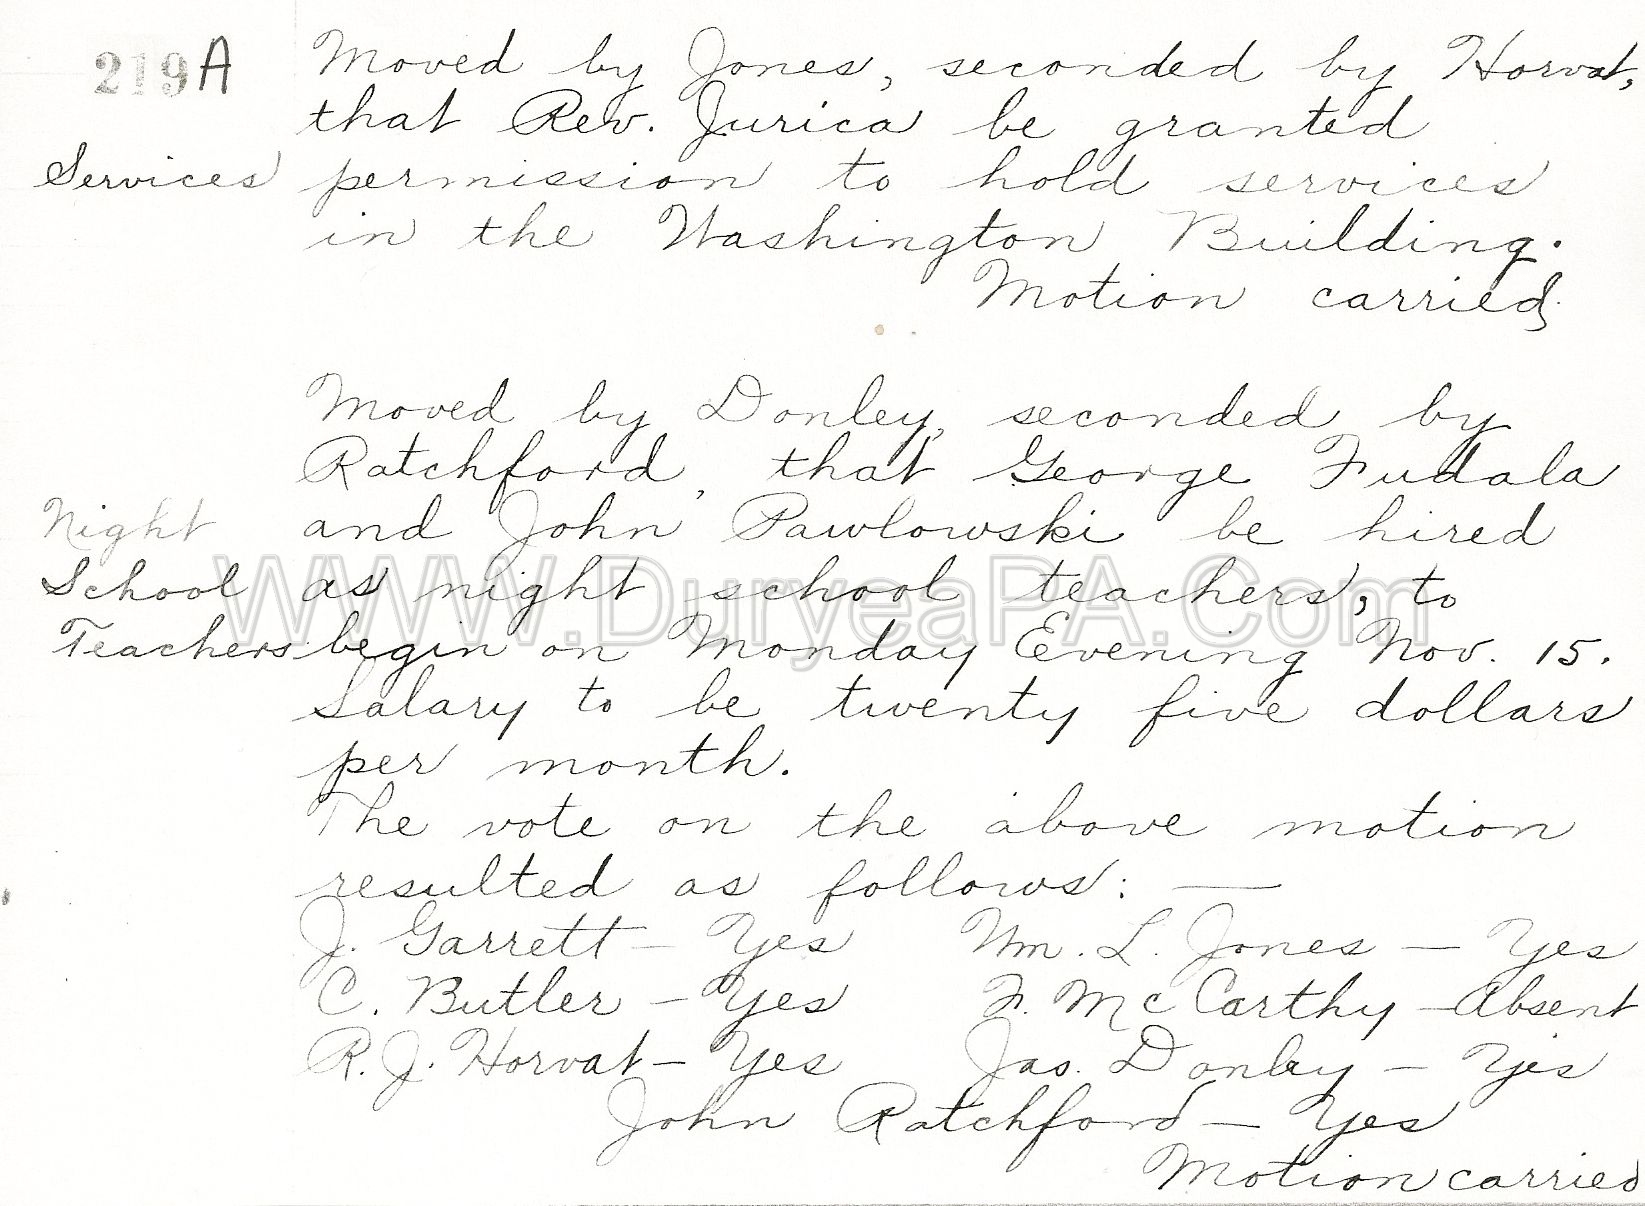 219A
Moved by Jones, seconded by Horvat,
that Rev. Jurica be granted
Services permission to hold services
in the Washington Building.
Motion carried.
Moved by Donley, seconded by
Ratchford, that George Fudala
Night and John Pawlowski be hired
School as night school teachers, to
Teachers begin on Monday Evening Nov. 15.
Salary to be twenty five dollars
per month.
The vote on the above motion
resulted as follows: —
J. Garrett — Yes Wm. L. Jones — Yes
C. Butler — Yes F. McCarthy — Absent
R. J. Horvat — Yes Jas. Donley — Yes
John Ratchford — Yes
Motion carried
WWW.DuryeaPA.Com